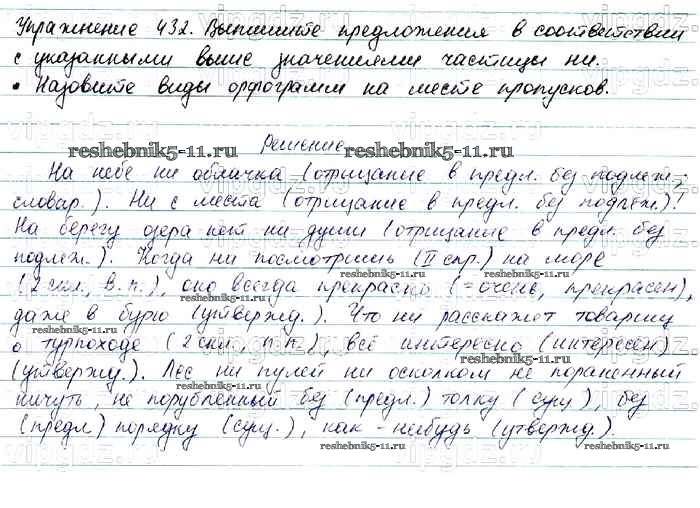 Упражнение 432. Выпишите предложения в соответствии
с указанными выше значениями частицы ни.
• Назовите виды орфограмм на месте пропусков.
Решение
reshebnik5-11.ru reshebnik5-11.ru
На небе ни облачка (отрицание в предл. без подлеж.,
словар.). Ни с места (отрицание в предл. без подлеж.)!
На берегу озера нет ни души (отрицание в предл. без
подлеж.). Когда ни посмотришь (II спр.) на море
reshebnik5-11.ru reshebnik5-11.ru
(2 скл., в.п.), оно всегда прекрасно (=очень, прекрасен),
даже в бурю (утвержд.). Что ни расскажет товарищ
reshebnik5-11.ru
о турпоходе (2 скл., п.п.), всё интересно (интересен)
reshebnik5-11.ru
(утвержд.). Лес ни пулей ни осколком не пораненный
ничуть, не порубленный без (предл.) толку (сущ.), без
reshebnik5-11.ru
(предл.) порядку (сущ.), как-нибудь (утвержд.).
reshebnik5-11.ru